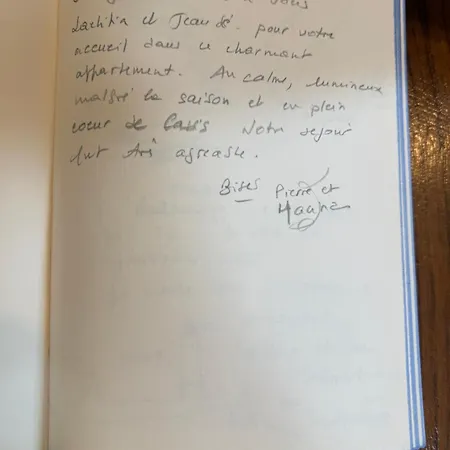 vous
Laetitia et Jean dé. pour votre
accueil dans ce charmant
appartement. Au calme, lumineux
malgré la saison et en plein
coeur de Notre sejour
fut agréable.
Bises Pierre et